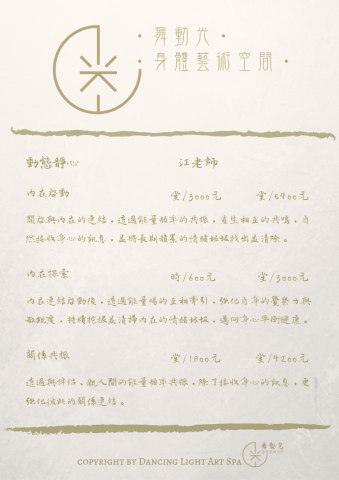 ·舞動光·
·身體藝術空間·
動態靜心 江老師
內在啟動 堂/3000元 堂/5400元
開啟與內在的連結,透過能量頻率的共振,產生相互的共鳴,自
然接收淨心的訊息,並將長期積累的情緒垃圾找出並清除。
內在探索 時/600元 堂/3000元
內在連結啟動後,透過能量場的互相牽引,強化自身的覺察力與
敏銳度,持續挖掘並清掃內在的情緒垃圾,邁向淨心平衡健康。
關係共振 堂/1800元 堂/4200元
透過與伴侶、親人間的能量頻率共振,除了接收淨心的訊息,更
強化彼此的關係連結。
舞動光
copyright by Dancing Light Art Spa